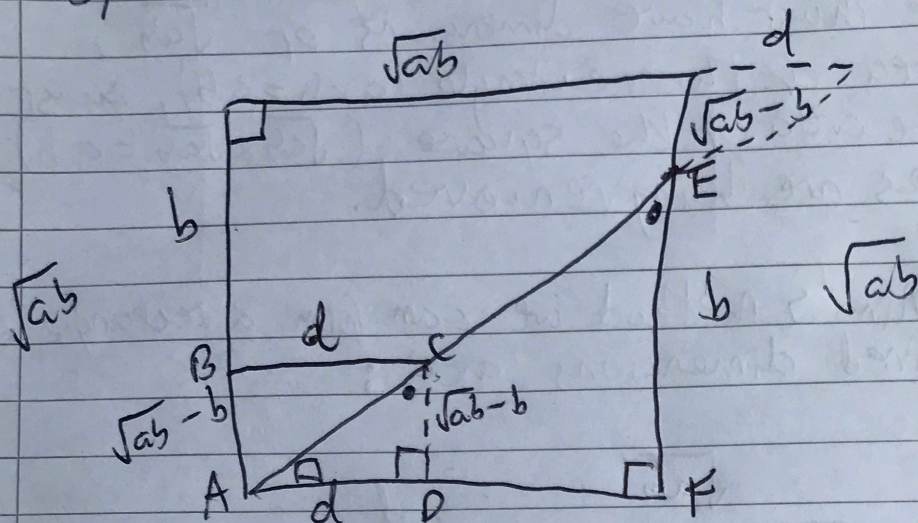 d
√ab
√ab - b
E
b
√ab
b
√ab
d
B
C
√ab - b
√ab - b
A
d
D
F